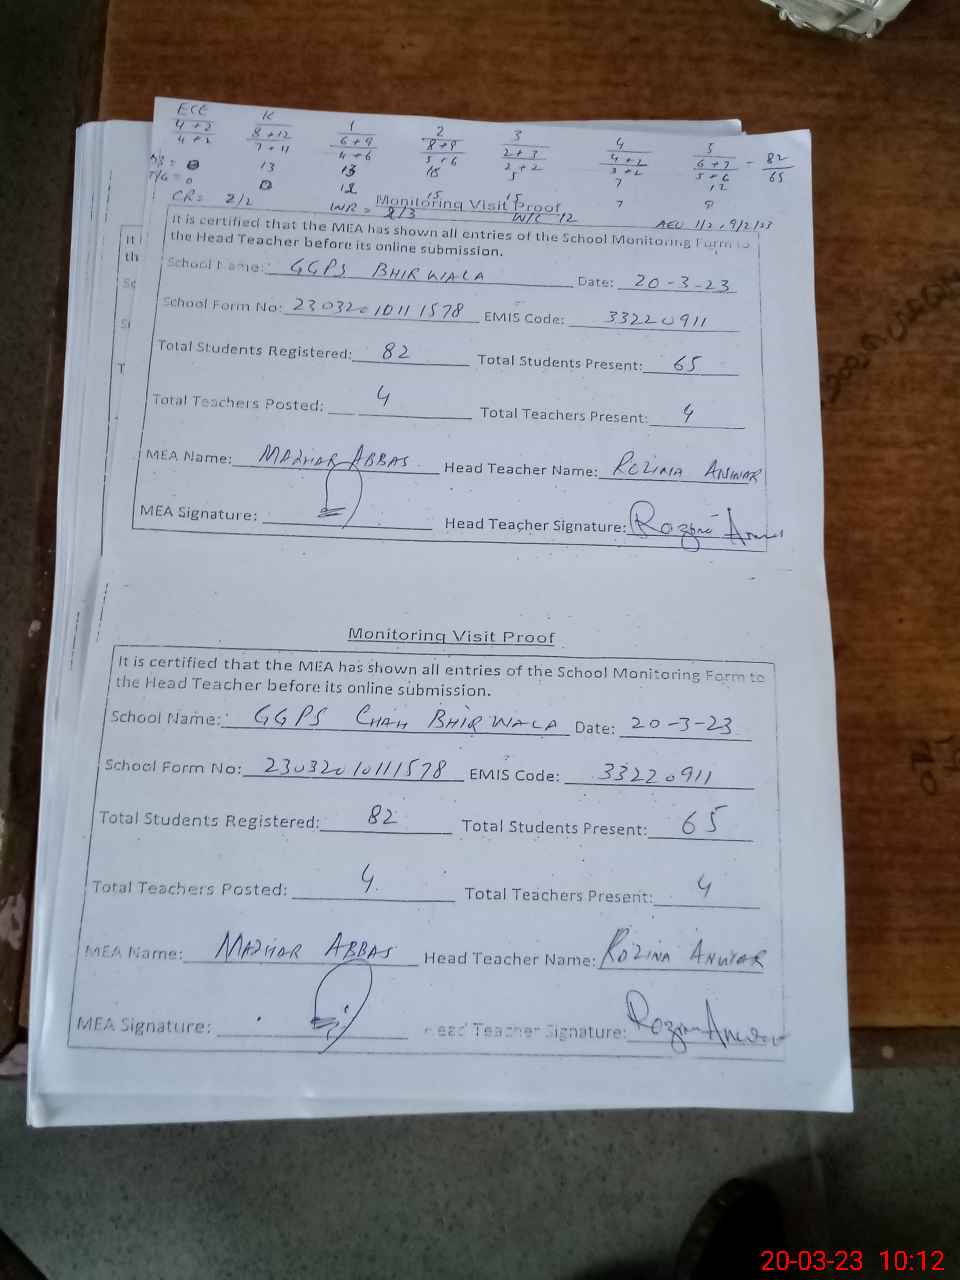 ECE K 1 2 3 4 5
4+2 8+12 6+9 8+9 2+3 4+2 6+7 - 82
4+2 7+11 4+6 5+6 2+2 3+2 5+6 65
13 13 15 5 7 12
T/G = 0 0 12 15 15 7 9
CR= 2/2 WR = 2/3 W/C 12 AEO 1/2, 9/2/23
Monitoring Visit Proof
It is certified that the MEA has shown all entries of the School Monitoring Form to
the Head Teacher before its online submission.
School Name: GGPS BHIRWALA Date: 20-3-23
School Form No: 23032010111578 EMIS Code: 33220911
Total Students Registered: 82 Total Students Present: 65
Total Teachers Posted: 4 Total Teachers Present: 4
MEA Name: MAZHAR ABBAS Head Teacher Name: ROZINA ANWAR
MEA Signature: Head Teacher Signature: Rozina Anwar
Monitoring Visit Proof
It is certified that the MEA has shown all entries of the School Monitoring Form to
the Head Teacher before its online submission.
School Name: GGPS CHAH BHIRWALA Date: 20-3-23
School Form No: 23032010111578 EMIS Code: 33220911
Total Students Registered: 82 Total Students Present: 65
Total Teachers Posted: 4 Total Teachers Present: 4
MEA Name: MAZHAR ABBAS Head Teacher Name: ROZINA ANWAR
MEA Signature: Head Teacher Signature: Rozina Anwar
20-03-23 10:12